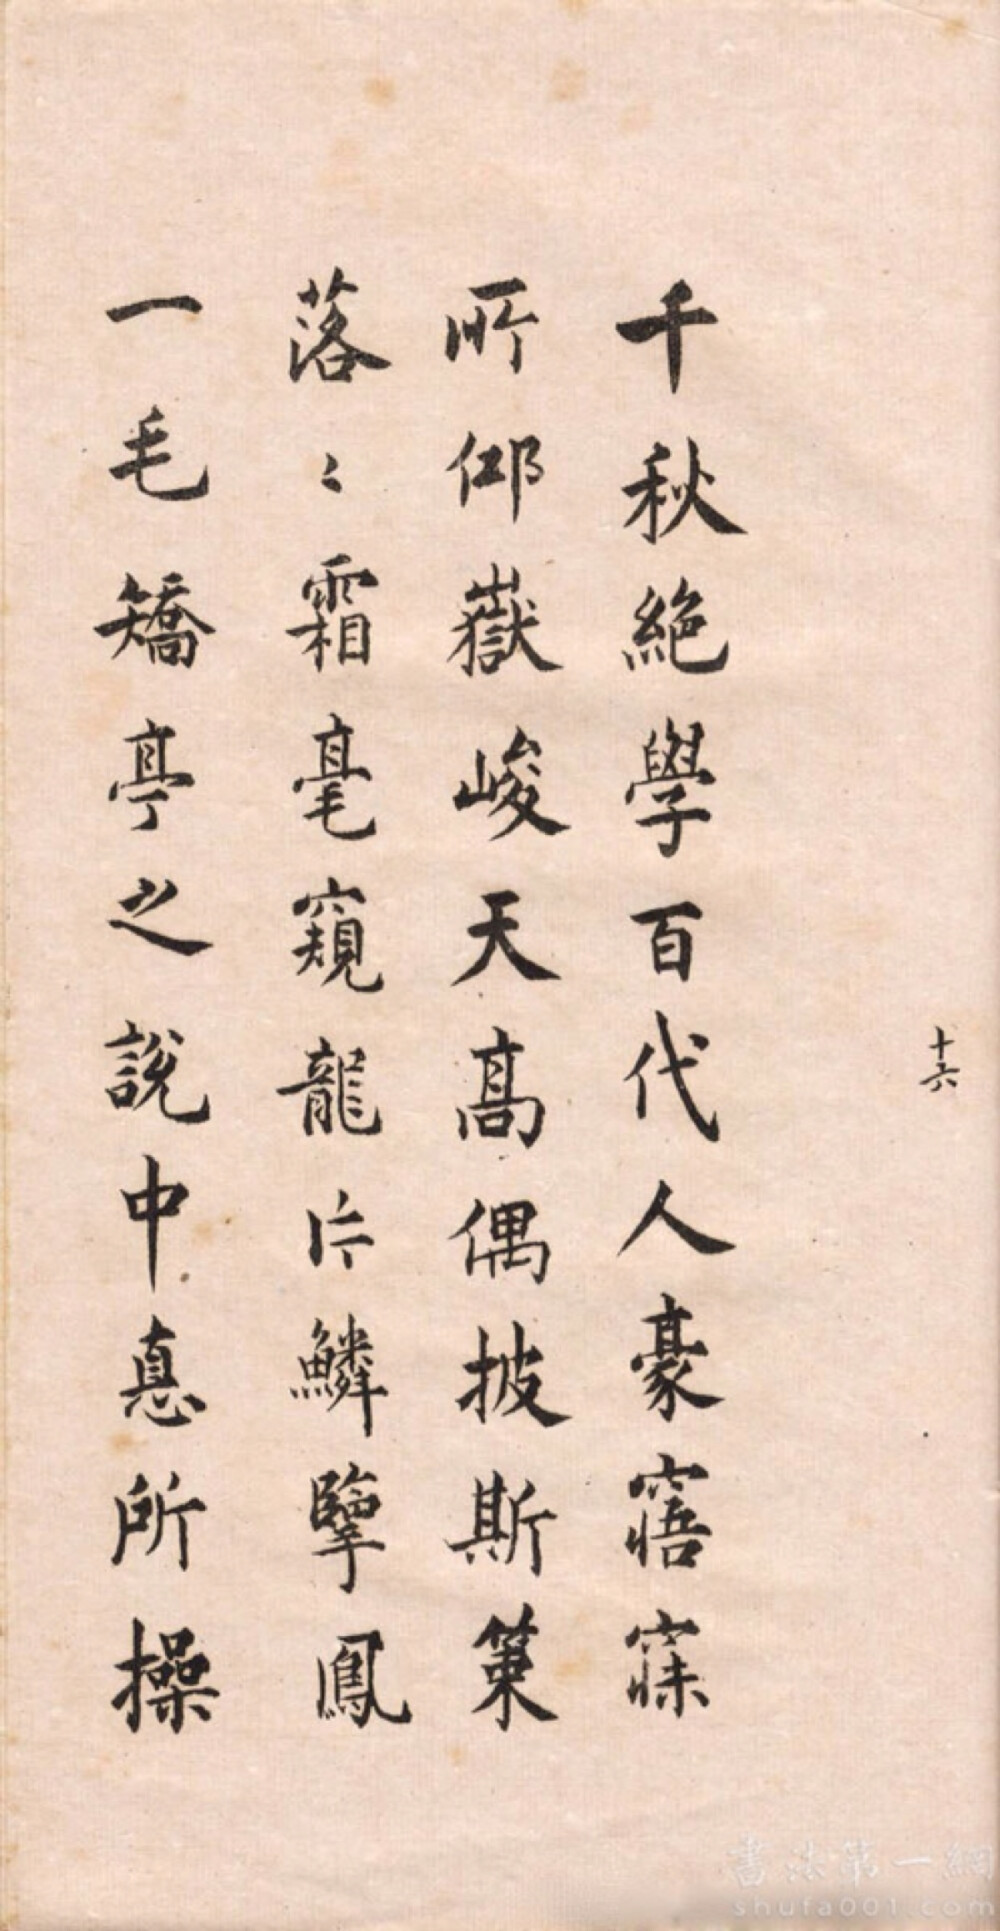 十六
千秋絕學百代人豪寤寐
所仰嶽峻天高偶披斯策
落〻霜毫窺龍片鱗擥鳳
一毛矯亭之說中悳所操
書法第一網
shufa001.com